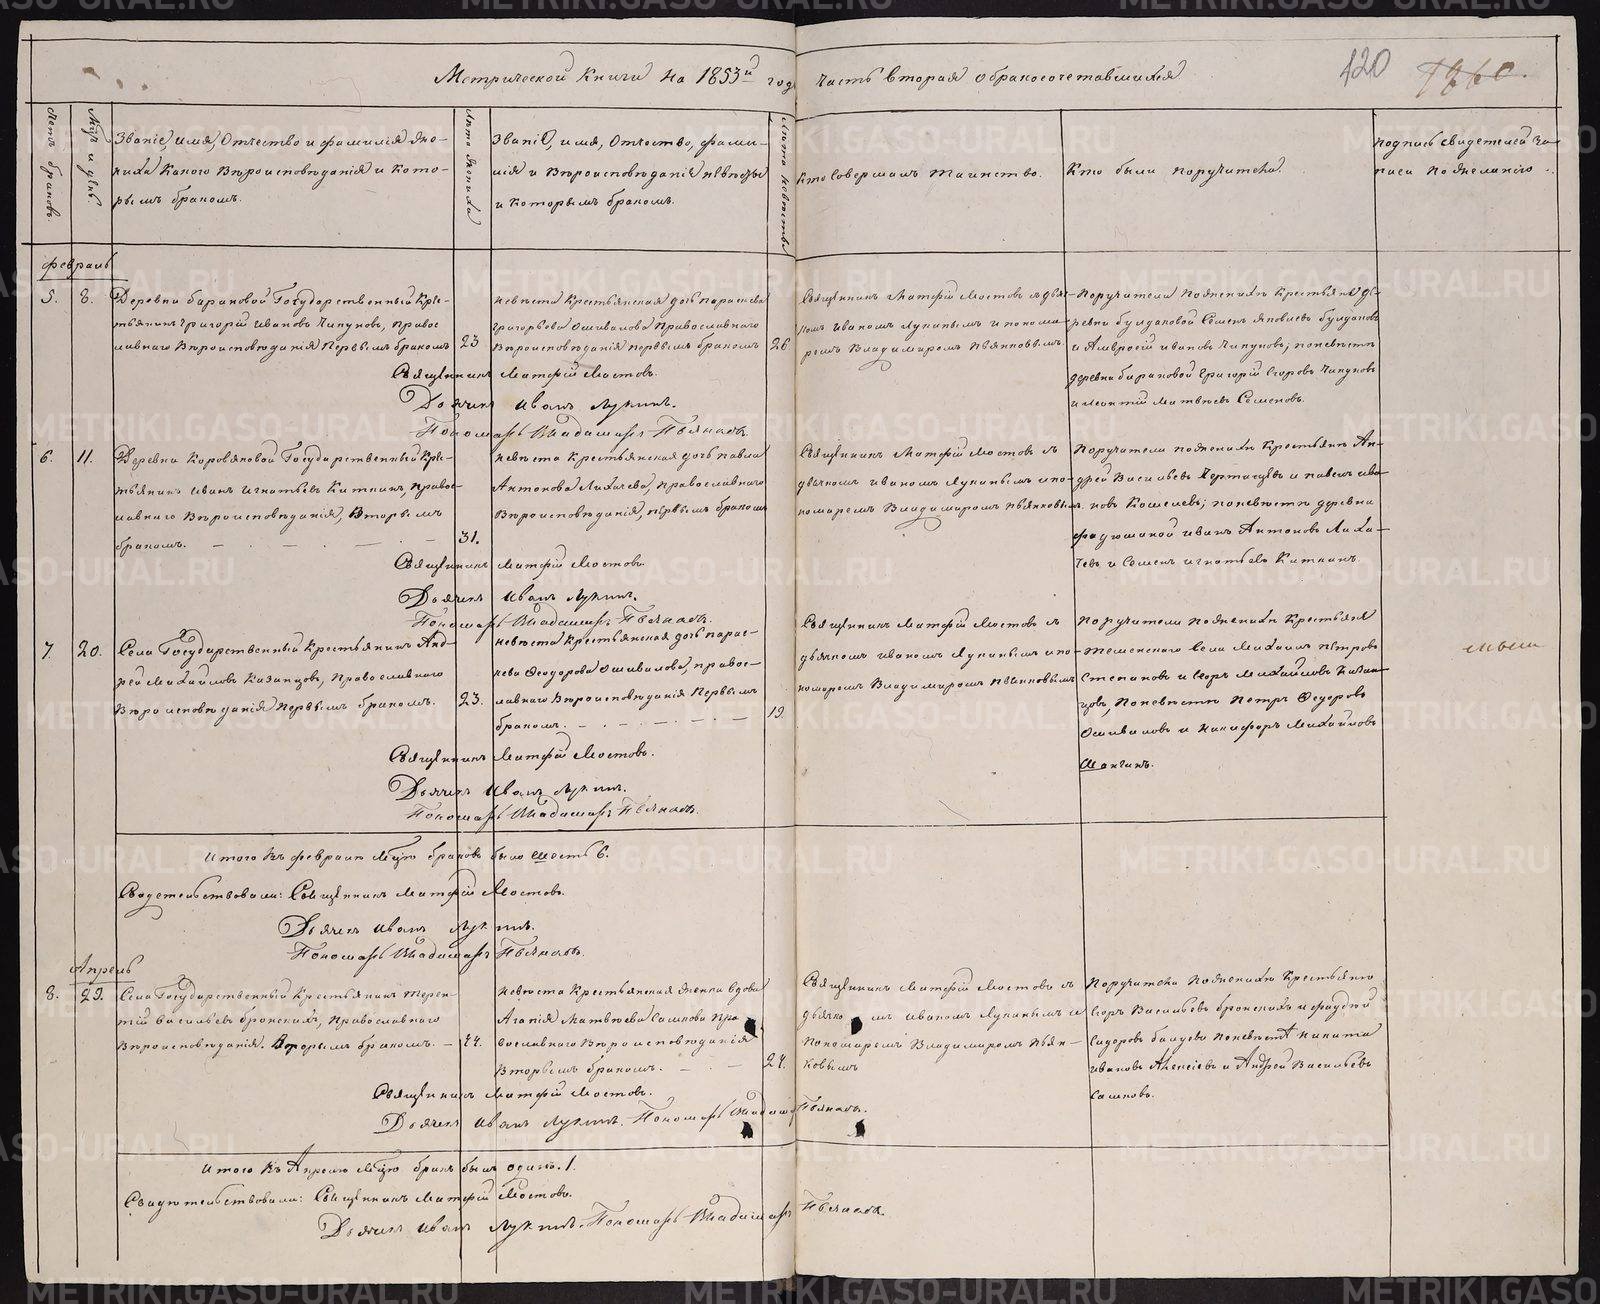 Метрической Книги на 1853й годъ Часть вторая о бракосочетавшихся
420
Счетъ браковъ.
Мцъ и день
Званіе, имя, Отчество и фамилія же-
ниха Какого Вѣроисповѣданія и Кото-
рымъ бракомъ.
Лѣта жениха
Званіе, имя, Отчество, фами-
лія и Вѣроисповѣданіе невѣсты
и Которымъ бракомъ.
Лѣта невѣсты
Кто Совершалъ таинство.
Кто были поручители.
подпись свидетелей за-
писи по желанію.
февраль
5. 8.
Деревни барановой Государственный Кре-
стьянинъ Григорій Ивановъ Чипуковъ, право-
славнаго Вѣроисповѣданія Первымъ бракомъ
23
невѣста Крестьянская дочь параскева
григорьева Ошивалова Православнаго
Вѣроисповѣданія первымъ бракомъ
26
Священникъ Матфій Мостовъ съ дья-
комъ Иваномъ Лукинымъ и понома-
ремъ Владимиромъ Пьянковымъ
Поручители по женихѣ Крестьяне де-
ревни булдаковой Семенъ Яковлевъ булдаковъ
и Амвросій ивановъ Чипуковъ; по невѣстѣ
деревни барановой Григорій Егоровъ Чипуковъ
и Леонтій Матвѣевъ Семеновъ.
Священникъ Матфій Мостовъ.
Дьячекъ Иванъ Лукинъ.
Пономарь Владимиръ Пьянковъ.
6. 11.
Деревни Коровяковой Государственный Кре-
стьянинъ Иванъ Игнатьевъ Киткинъ, право-
славнаго Вѣроисповѣданія, Вторымъ
бракомъ.
31.
невѣста крестьянская дочь павла
Антонова Лихачева, православнаго
Вѣроисповѣданія, первымъ бракомъ
Священникъ Матфій Мостовъ съ
дьячкомъ Иваномъ Лукинымъ и по-
номаремъ Владимиромъ Пьянковымъ.
Поручители по женихѣ Крестьяне Ан-
дрей Васильевъ и павелъ ива-
новъ Кошелевъ; по невѣстѣ деревни
фадюшиной иванъ Антоновъ Лиха-
чевъ и Семенъ игнатьевъ Киткинъ.
Священникъ Матфій Мостовъ.
Дьячекъ Иванъ Лукинъ.
Пономарь Владимиръ Пьянковъ.
7. 20.
Села Государственный Крестьянинъ Анд-
рей Михайловъ Казанцовъ, Православнаго
Вѣроисповѣданія Первымъ бракомъ.
23.
невѣста Крестьянская дочь парас-
кева Феодорова Ошивалова, право-
славнаго Вѣроисповѣданія Первымъ
бракомъ.
19.
Священникъ Матфій Мостовъ съ
дьячкомъ Иваномъ Лукинымъ и по-
номаремъ Владимиромъ Пьянковымъ
Поручители по женихѣ Крестьяне
Теменскаго Села Михаилъ Петровъ
Степановъ и Егоръ Михайловъ Казан-
цовъ, По невѣстѣ Петръ Федоровъ
Ошиваловъ и Никифоръ Михайловъ
Шангинъ.
Священникъ Матфій Мостовъ.
Дьячекъ Иванъ Лукинъ.
Пономарь Владимиръ Пьянковъ.
Итого въ февралѣ Мцѣ браковъ было шесть 6.
Свидетельствовали: Священникъ Матфій Мостовъ.
Дьячекъ Иванъ Лукинъ.
Пономарь Владимиръ Пьянковъ.
Апрель
8. 29.
Села Государственный Крестьянинъ Терен-
тій Васильевъ бронскихъ, православнаго
Вѣроисповѣданія. Вторымъ бракомъ.
44.
невѣста Крестьянская женка вдова
Агапія Матвѣева Сашкова Пра-
вославнаго Вѣроисповѣданія
Вторымъ бракомъ.
24.
Священникъ Матфій Мостовъ съ
дьячкомъ Иваномъ Лукинымъ и
Пономаремъ Владимиромъ Пьян-
ковымъ
Поручители по женихѣ Крестьяне
Егоръ Васильевъ бронскихъ и фаддей
Сидоровъ балуевъ По невѣстѣ Никита
Ивановъ Алексѣевъ и Андрей Васильевъ
Сашковъ.
Священникъ Матфій Мостовъ.
Дьячекъ Иванъ Лукинъ. Пономарь Владимиръ Пьянковъ.
Итого въ Апрелѣ Мцѣ бракъ былъ одинъ. 1.
Свидетельствовали: Священникъ Матфій Мостовъ.
Дьячекъ Иванъ Лукинъ. Пономарь Владимиръ Пьянковъ.
METRIKI.GASO-URAL.RU